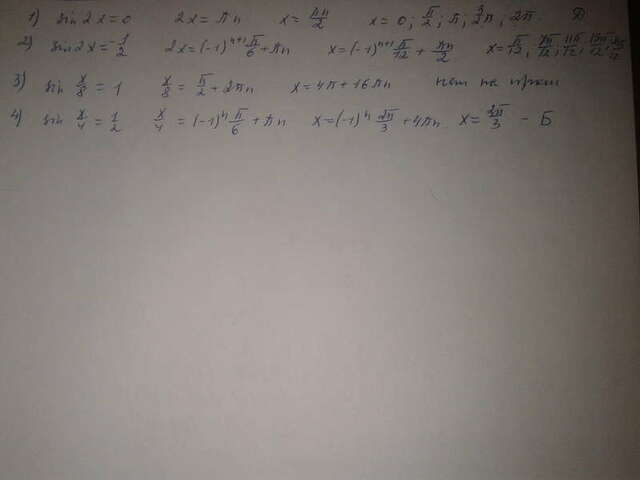 1) sin 2x = 0 2x = πn x = πn/2 x = 0; π/2; π; 3/2π; 2π. Д
2) sin 2x = -1/2 2x = (-1)ⁿ⁺¹ π/6 + πn x = (-1)ⁿ⁺¹ π/12 + πn/2 x =
3) sin x/8 = 1 x/8 = π/2 + 2πn x = 4π + 16πn нет на пром
4) sin x/4 = 1/2 x/4 = (-1)ⁿ π/6 + πn x = (-1)ⁿ 2π/3 + 4πn x = 2π/3 - Б